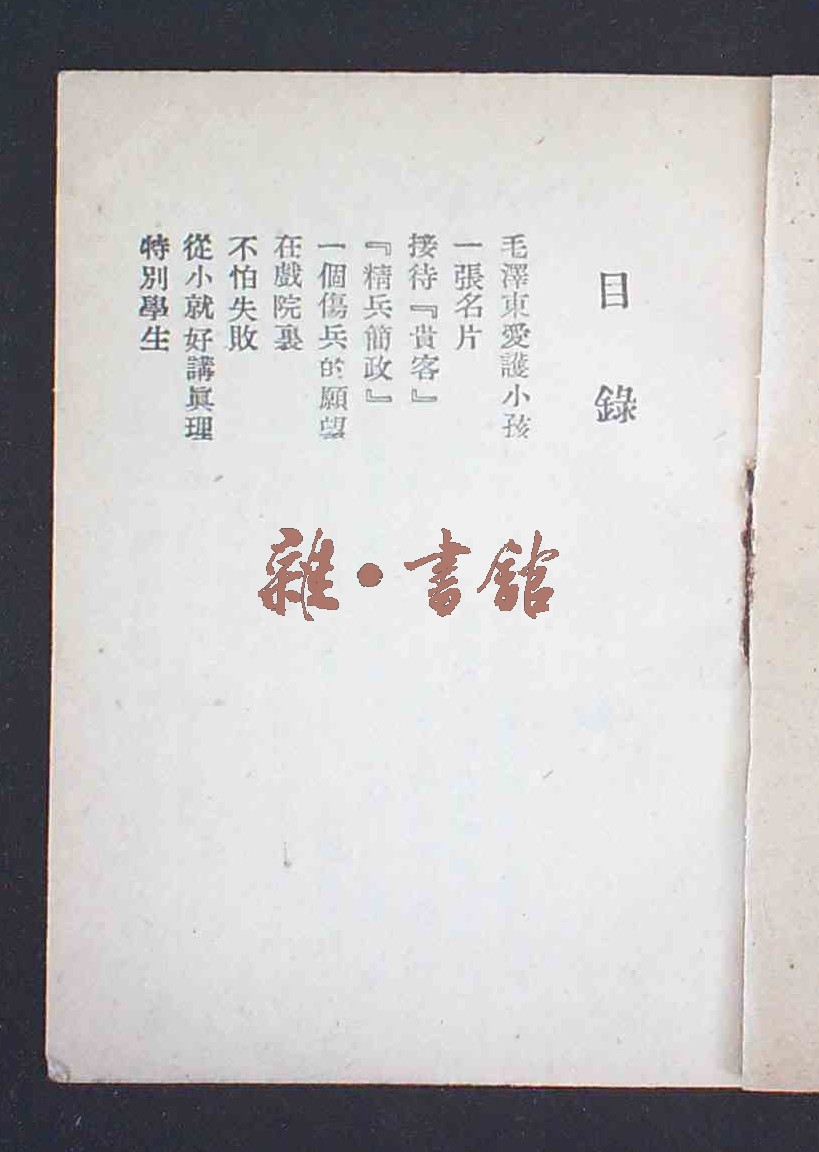 目錄
毛澤東愛護小孩
一張名片
接待『貴客』
『精兵簡政』
一個傷兵的願望
在戲院裏
不怕失敗
從小就好講眞理
特別學生
雜·書館